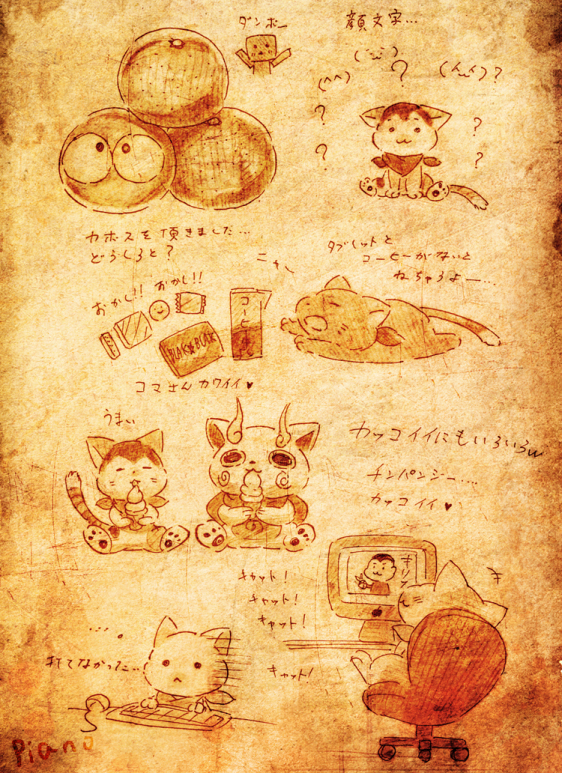 ダンボー
顔文字…
(^^)
?
?
?
?
?
カボスを頂きました…
どうしろと?
ニャー
タブレットと
コーヒーがないと
ねちゃうよー…
おかし!! おかし!!
コーヒー
BLACK★BLACK
コマさんカワイイ♥
うまい
カッコイイにもいろいろw
チンパンジー…
カッコイイ♥
キャット!
キャット!
キャット!
キャット!
打てなかった…
Piano